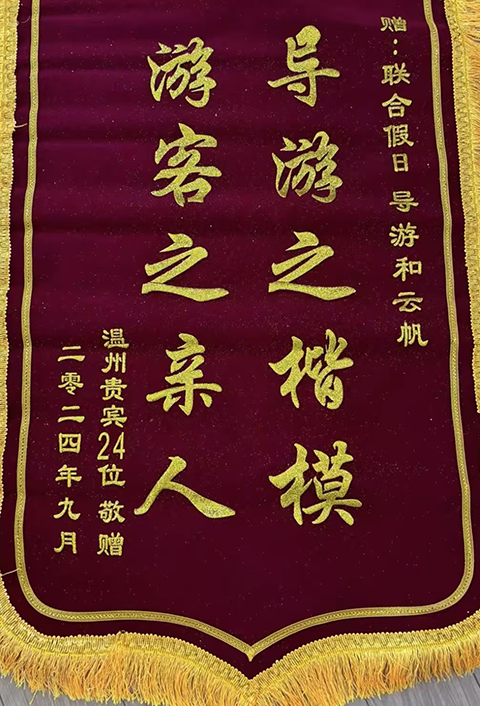 赠：联合假日 导游和云帆
导游之楷模
游客之亲人
温州贵宾24位 敬赠
二零二四年九月